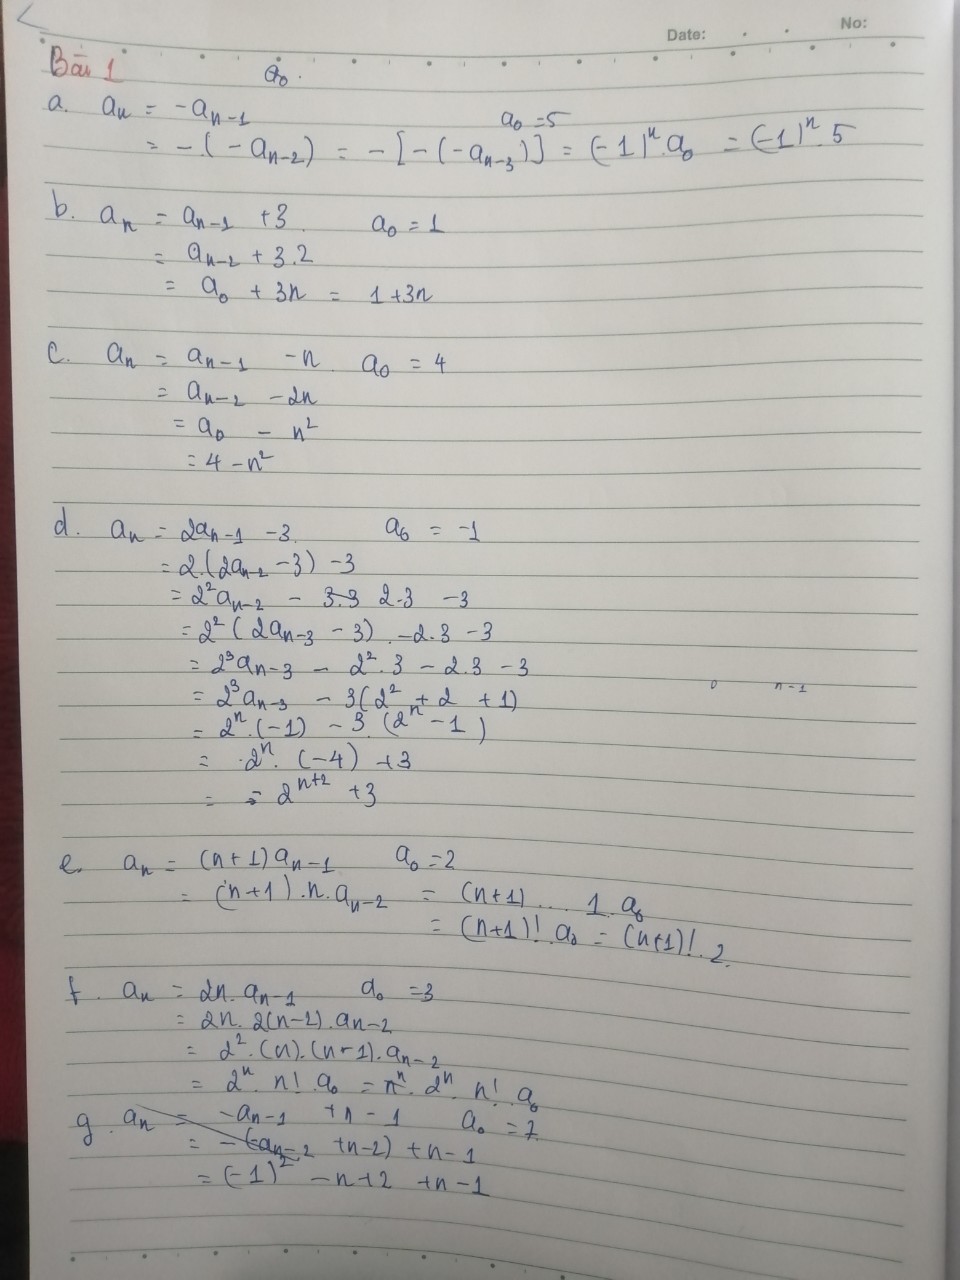 Date:
No:
Bài 1
a₀.
a. aₙ = -aₙ₋₁ a₀ = 5
= -(-aₙ₋₂) = -[-(-aₙ₋₃)] = (-1)ⁿ.a₀ = (-1)ⁿ.5
b. aₙ = aₙ₋₁ +3 a₀ = 1
= aₙ₋₂ + 3.2
= a₀ + 3n = 1 +3n
c. aₙ = aₙ₋₁ -n a₀ = 4
= aₙ₋₂ -2n
= a₀ - n²
= 4 -n²
d. aₙ = 2aₙ₋₁ -3. a₀ = -1
= 2.(2aₙ₋₂ -3) -3
= 2²aₙ₋₂ - 3.3 2.3 -3
= 2²(2aₙ₋₃ -3) -2.3 -3
= 2³aₙ₋₃ - 2².3 - 2.3 - 3
0 n-1
= 2³aₙ₋₃ - 3(2² + 2 + 1)
= 2ⁿ.(-1) - 3.(2ⁿ - 1)
= 2ⁿ.(-4) +3
= - 2ⁿ⁺² +3
e. aₙ = (n+1)aₙ₋₁ a₀ = 2
= (n+1).n.aₙ₋₂ = (n+1) .... 1.a₀
= (n+1)!.a₀ = (n+1)!.2.
f. aₙ = 2n.aₙ₋₁ a₀ = 3
= 2n.2(n-2).aₙ₋₂
= 2².(n).(n-1).aₙ₋₂
= 2ⁿ.n!.a₀ = nⁿ.2ⁿ.n!.a₀
g. aₙ = -aₙ₋₁ +n - 1 a₀ = 7
= -(-aₙ₋₂ +n-2) +n-1
= (-1)² -n+2 +n-1